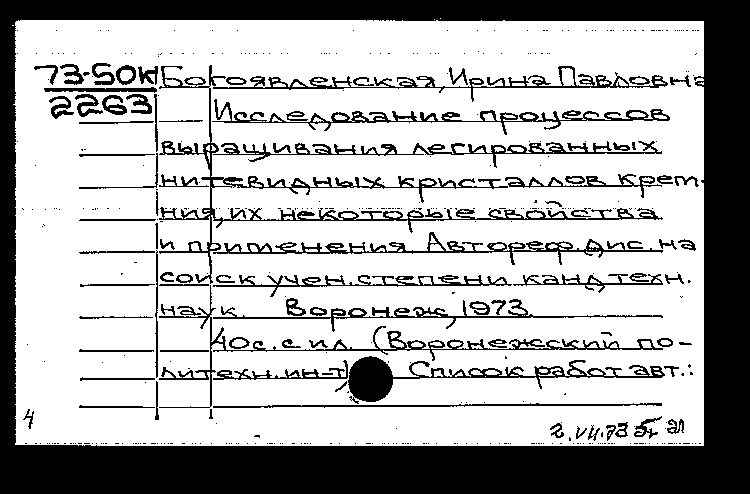 73-50к Богоявленская, Ирина Павловна
2263 Исследование процессов
выращивания легированных
нитевидных кристаллов крем-
ния, их некоторые свойства
и применения. Автореф. дис. на
соиск. учен. степени канд. техн.
наук. Воронеж, 1973.
40 с. с ил. (Воронежский по-
литехн. ин-т) Список работ авт.:
4
2.VII.73